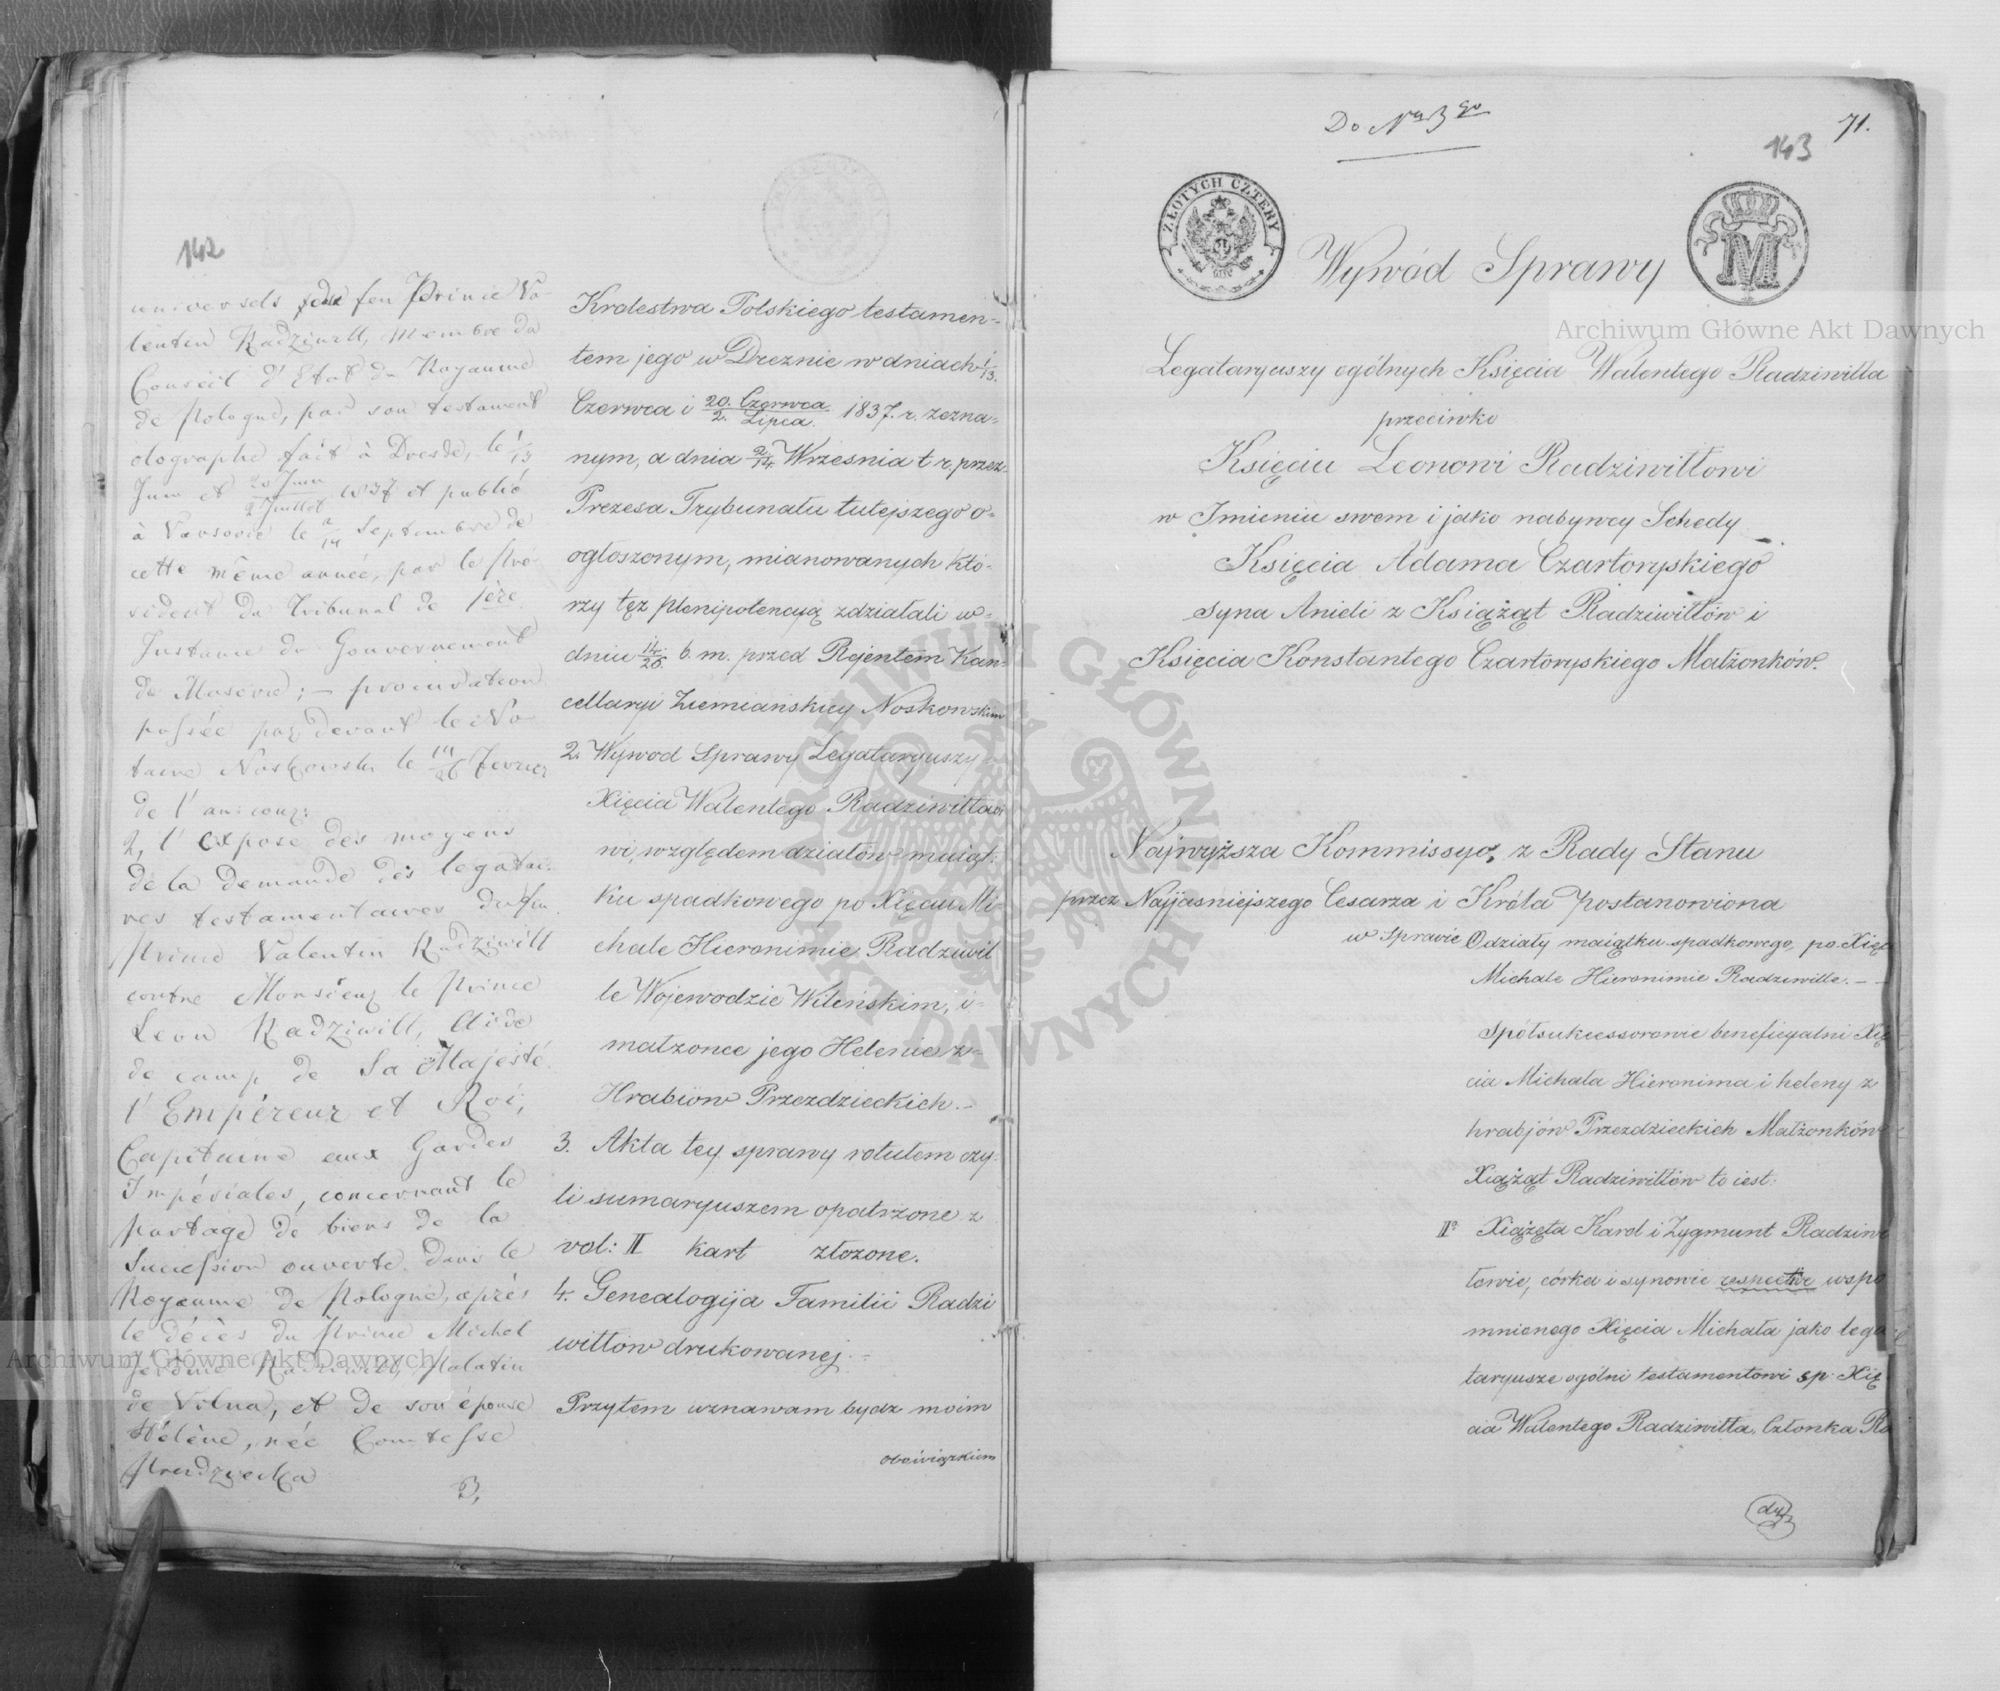 142
universels de feu Prince Va-
lentin Radziwill, membre du
Conseil d'Etat du Royaume
de Pologne, par son testament
olographe fait à Dresde, le 1/13
Juin et 20 Juin/2 Juillet 1837 et publié
à Varsovie le 2/14 Septembre de
cette même année, par le Pré-
sident du Tribunal de 1ère
Instance du Gouvernement
de Masovie; — procuration
passée par devant le No
taire Noskowski le 14/26 Fevrier
de l'an
2, l'exposé des moyens
de la demande des legatai-
res testamentaires du feu
Prince Valentin Radziwill
contre Monsieur le Prince
Leon Radziwill, Aide
de camp de Sa Majesté
l'Empéreur et Roi,
Capitaine aux Gardes
Impériales, concernant le
partage de biens de la
Succession ouverte dans le
Royaume de Pologne, après
le décès du Prince Michel
Jérôme Radziwill, Palatin
de Vilna, et de son épouse
Hélène, née Comtesse
Przezdziecka
3,
Krolestwa Polskiego testamen=
tem jego w Dreznie w dniach 1/13.
Czerwca i 20. Czerwca/2. Lipca. 1837. r. zezna=
nym, a dnia 2/14 Wrzesnia t r. przez
Prezesa Trybunału tutejszego o=
ogłoszonym, mianowanych któ-
rzy tęż plenipotencyą zdziałali w=
dniu 14/26. b. m. przed Rejentem Kan=
cellaryi Ziemiańskiey Noskowskim
2. Wywod Sprawy Legataryuszy
Xięcia Walentego Radziwiłłow
wi, względem działów maiąt-
ku spadkowego po Xięciu Mi-
chale Hieronimie Radziwil
le Wojewodzie Wileńskim, i=
małzonce jego Helenie z=
Hrabiow Przezdzieckich.—
3. Akta tey sprawy rotulem czy-
li sumaryuszem opatrzone z
vol: II kart złozone.
4. Genealogija Familii Radzi
wiłłow drukowanej.=
Przytem uznawam bydz moim
obowiązkiem
Do Nru 3go
71.
143
ZŁOTYCH CZTERY
M
Wywód Sprawy
Legataryuszy ogólnych Księcia Walentego Radziwiłła
przeciwko
Księciu Leonowi Radziwiłłowi
w Imieniu swem i jako nabywcy Schedy
Księcia Adama Czartoryskiego
syna Anieli z Książąt Radziwiłłów i
Księcia Konstantego Czartoryskiego Małżonków.
Najwyższa Kommissyo, z Rady Stanu
przez Nayjasniejszego Cesarza i Króla postanowiona
w Sprawie O działy maiątku spadkowego, po Xięc
Michale Hieronimie Radziwille. — —
Spółsukcessorowie beneficyalni Xię
cia Michała Hieronima i heleny z
hrabjów Przezdzieckich Małżonków
Xiążąt Radziwiłłów to iest:
IIo Xiążęta Karol i Zygmunt Radziwi
łowie, córka i synowie respective wspo
mnionego Xięcia Michała jako lega
taryusze ogólni testamentowi sp. Xię
cia Walentego Radziwiłła, Członka Ra
dy
Archiwum Główne Akt Dawnych
Archiwum Główne Akt Dawnych
ARCHIWUM GŁÓWNE AKT DAWNYCH